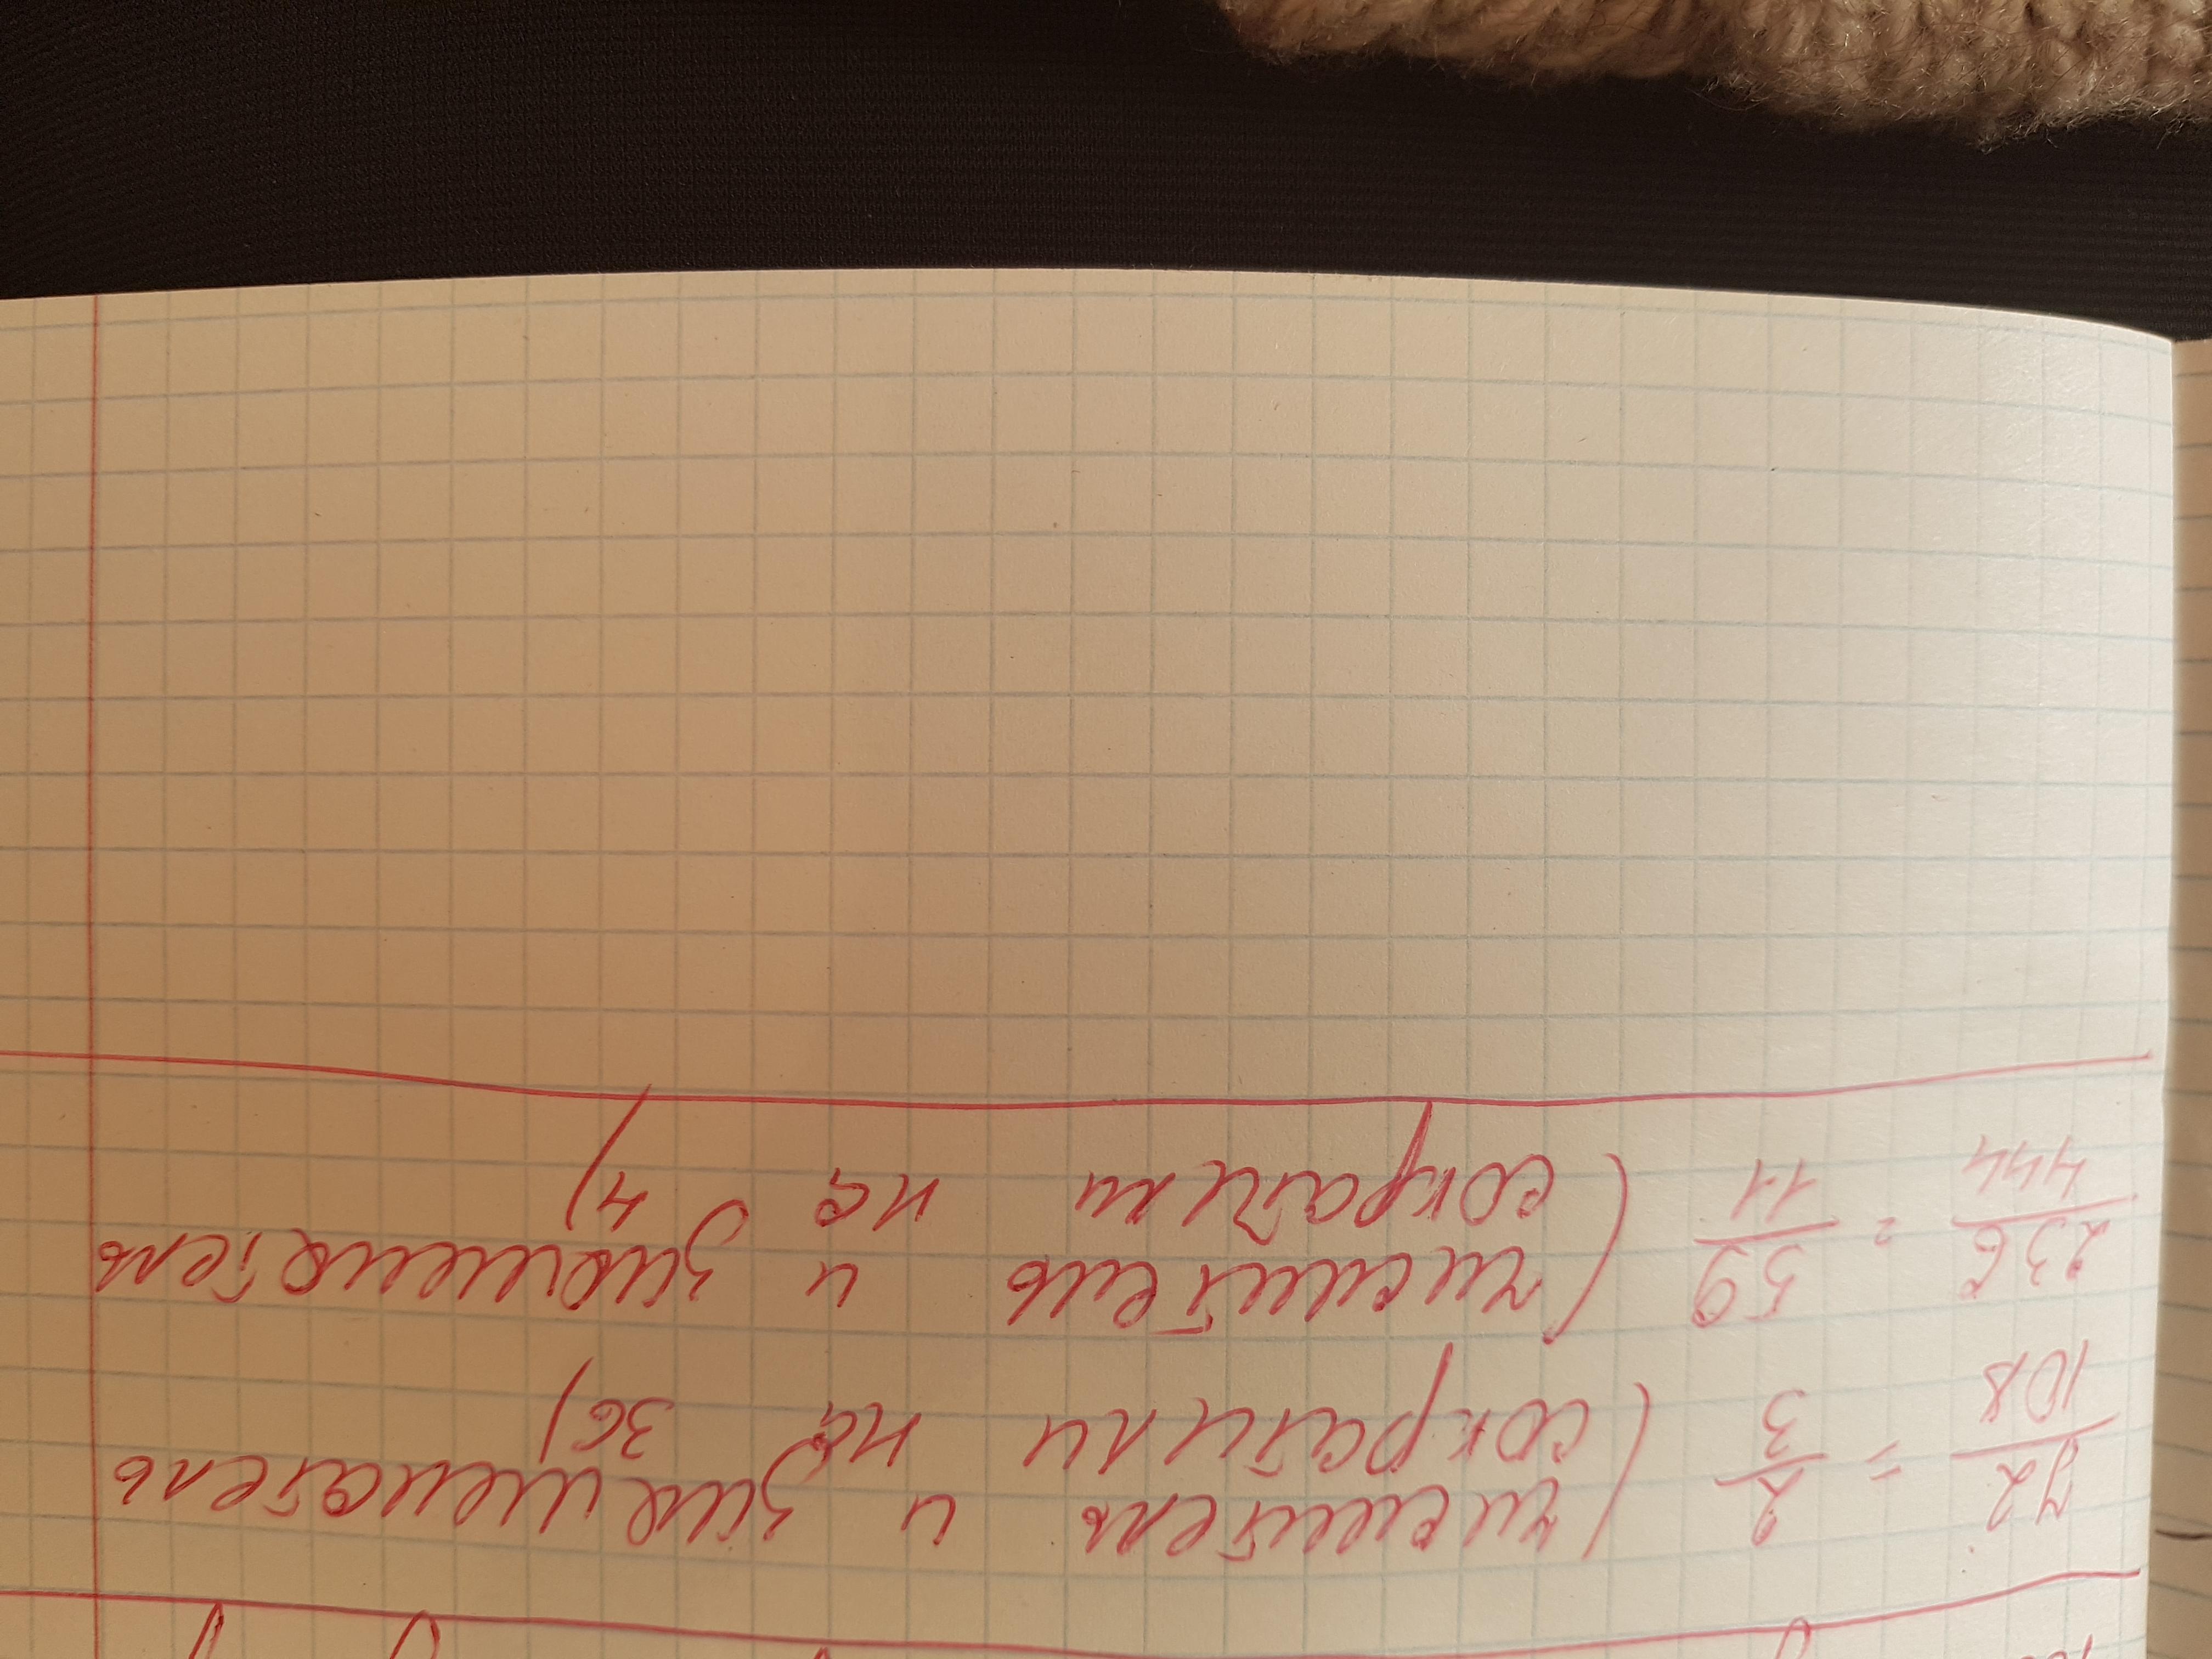 72/108 = 2/3 (числитель и знаменатель
(сократили на 36)
236/444 = 59/11 (числитель и знаменатель
(сократили на 4)